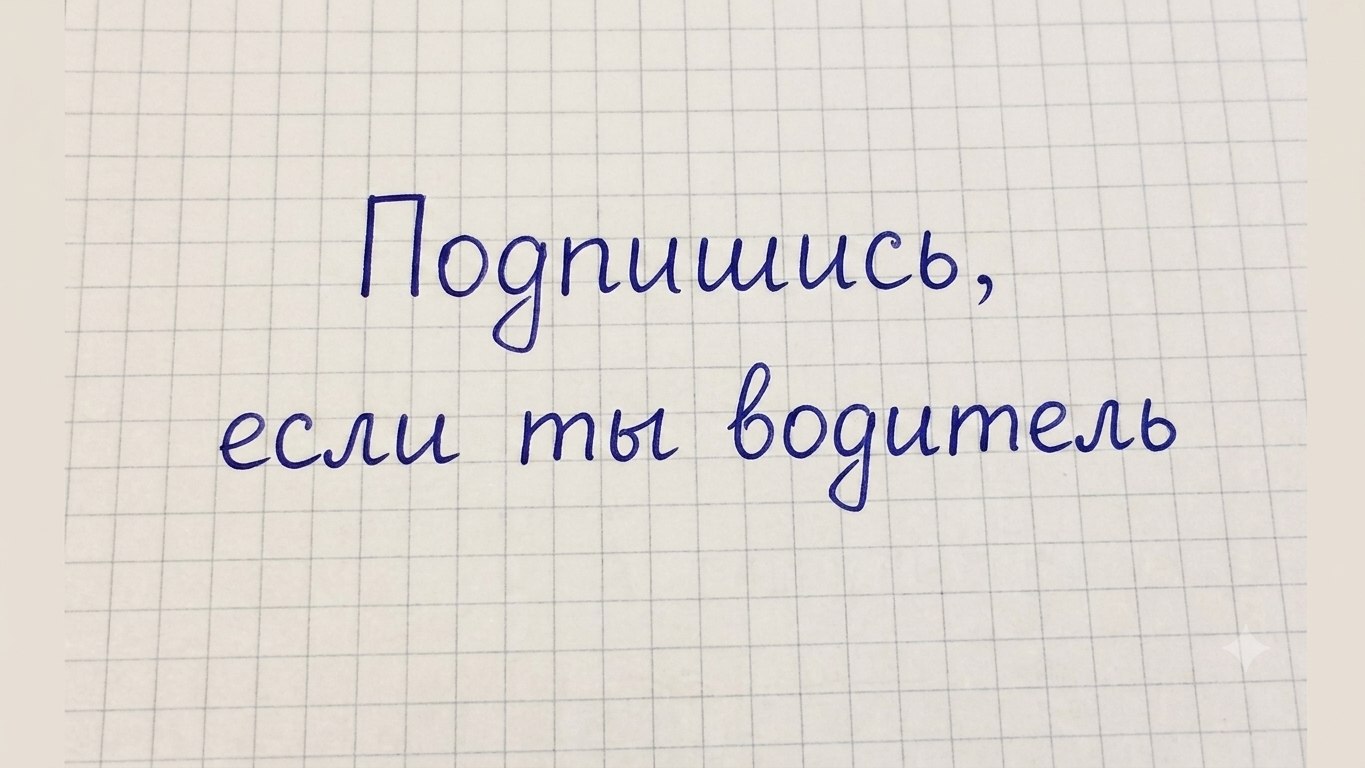 Подпишись,
если ты водитель